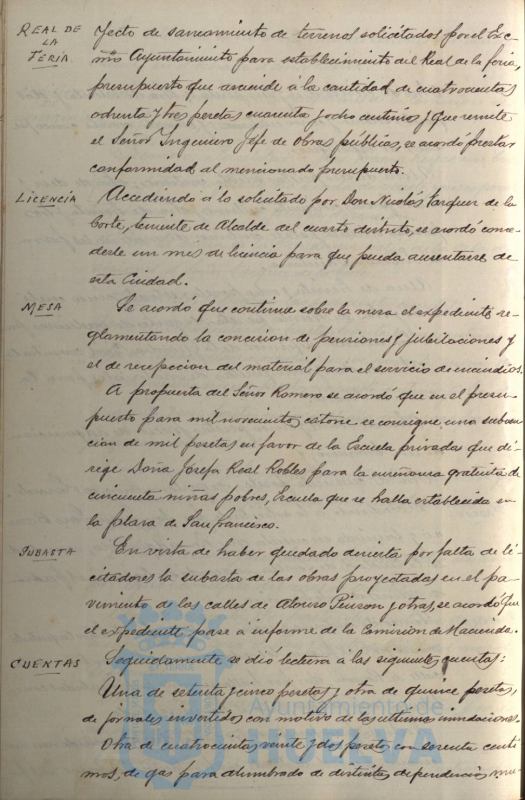 REAL DE
LA
FERIA
yecto de saneamiento de terrenos solicitados por el Exc-
mo Ayuntamiento para establecimiento del Real de la feria,
presupuesto que asciende á la cantidad de cuatrocientas
ochenta y tres pesetas cuarenta y ocho centimos y que remite
el Señor Ingeniero Jefe de Obras públicas, se acordó prestar
conformidad al mencionado presupuesto.
LICENCIA
Accediendo á lo solicitado por Don Nicolás Vazquez de la
Corte, teniente de Alcalde del cuarto distrito, se acordó conce-
derle un mes de licencia para que pueda ausentarse de
esta Ciudad.
MESA
Se acordó que continue sobre la mesa el expediente re-
glamentando la concesion de pensiones y jubilaciones y
el de recepcion del material para el servicio de incendios.
A propuesta del Señor Romero se acordó que en el presu-
puesto para mil novecientos catorce se consigne una subven-
cion de mil pesetas en favor de la Escuela privada que di-
rige Doña Josefa Real Robles para la enseñanza gratuita de
cincuenta niñas pobres, Escuela que se halla establecida en
la plaza de San Francisco.
SUBASTA
En vista de haber quedado desierta por falta de li-
citadores la subasta de las obras proyectadas en el pa-
vimento de las calles de Alonso Pinzon y otras, se acordó que
el expediente pase á informe de la Comision de Hacienda.
CUENTAS
Seguidamente se dió lectura á las siguientes cuentas:
Una de setenta y cinco pesetas y otra de quince pesetas,
de jornales invertidos con motivo de las ultimas inundaciones.
Otra de cuatrocientas veinte y dos pesetas con sesenta centi-
mos, de gas para alumbrado de distintas dependencias mu-
Ayuntamiento de
HUELVA